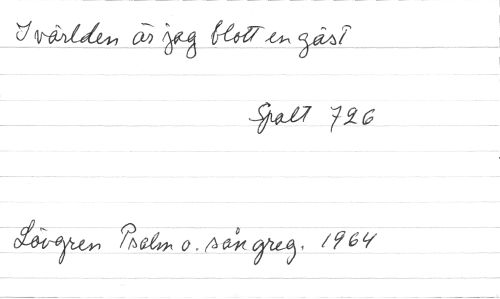 I världen är jag blott en gäst
Spalt 726
Lövgren Psalm o. sångreg. 1964